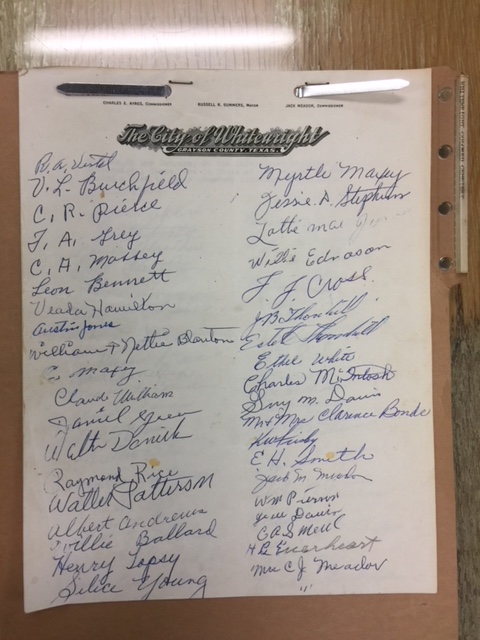 CHARLES S. AYRES, COMMISSIONER
RUSSELL R. SUMMERS, MAYOR
JACK MEADOR, COMMISSIONER
The City of Whitewright
GRAYSON COUNTY, TEXAS.
R. A.
V. L. Burchfield
C. R. Pierce
F. A. Grey
C. A. Massey
Leon Bennett
Veada Hamilton
Austin Jones
William & Nettie Blanton
C Maxey
Claud William
Daniel Green
Walter
Raymond Rice
Walter Patterson
Albert Andrews
Willie Ballard
Henry Topsy
Young
Myrtle Maxey
Jessie D. Stephens
Lottie Mae
Willie Ednason
J. J. Cross
J B Thornhill
Estel Thornhill
Ethel White
Charles McIntosh
Guy M. Davis
Mr & Mrs Clarence Bonds
E. H. Smith
Jack M.
W M Pierson
Davis
H B Everheart
Mrs C. J. Meador